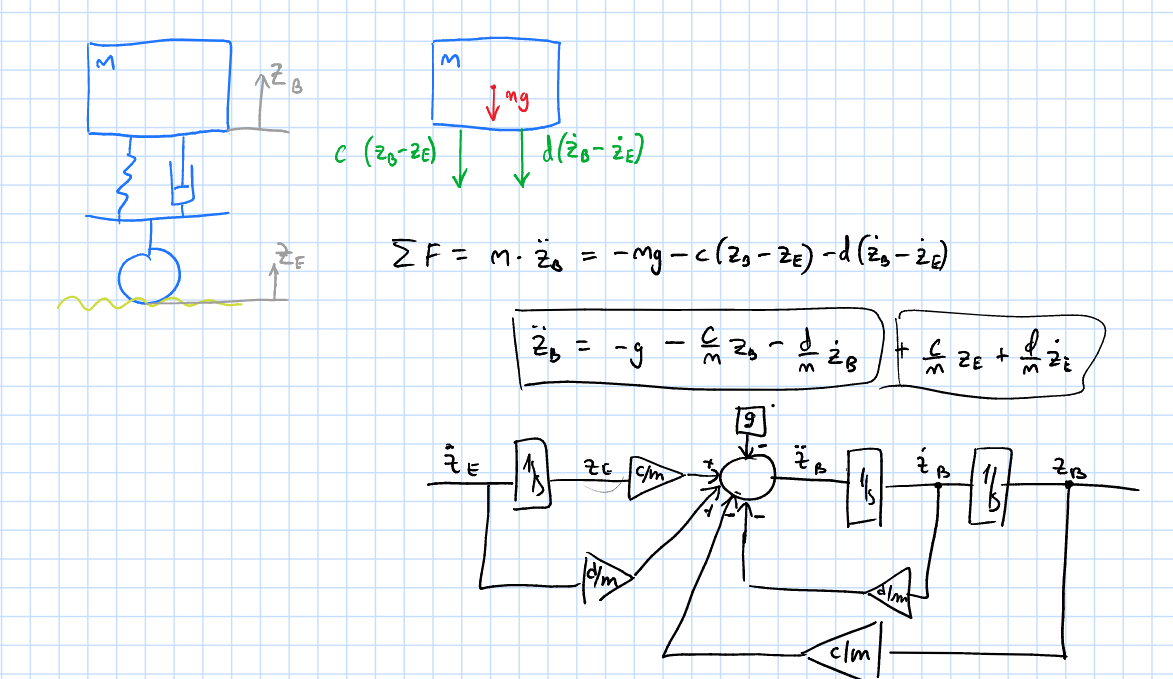 m
z_B
z_E
m
mg
c (z_B-z_E)
d(ż_B-ż_E)
∑F = m· z̈_B = -mg-c(z_B-z_E)-d(ż_B-ż_E)
z̈_B = -g - c/m z_B - d/m ż_B + c/m z_E + d/m ż_E
g
-
ż_E
1/s
z_E
c/m
+
z̈_B
1/s
ż_B
1/s
z_B
+
-
-
d/m
d/m
c/m